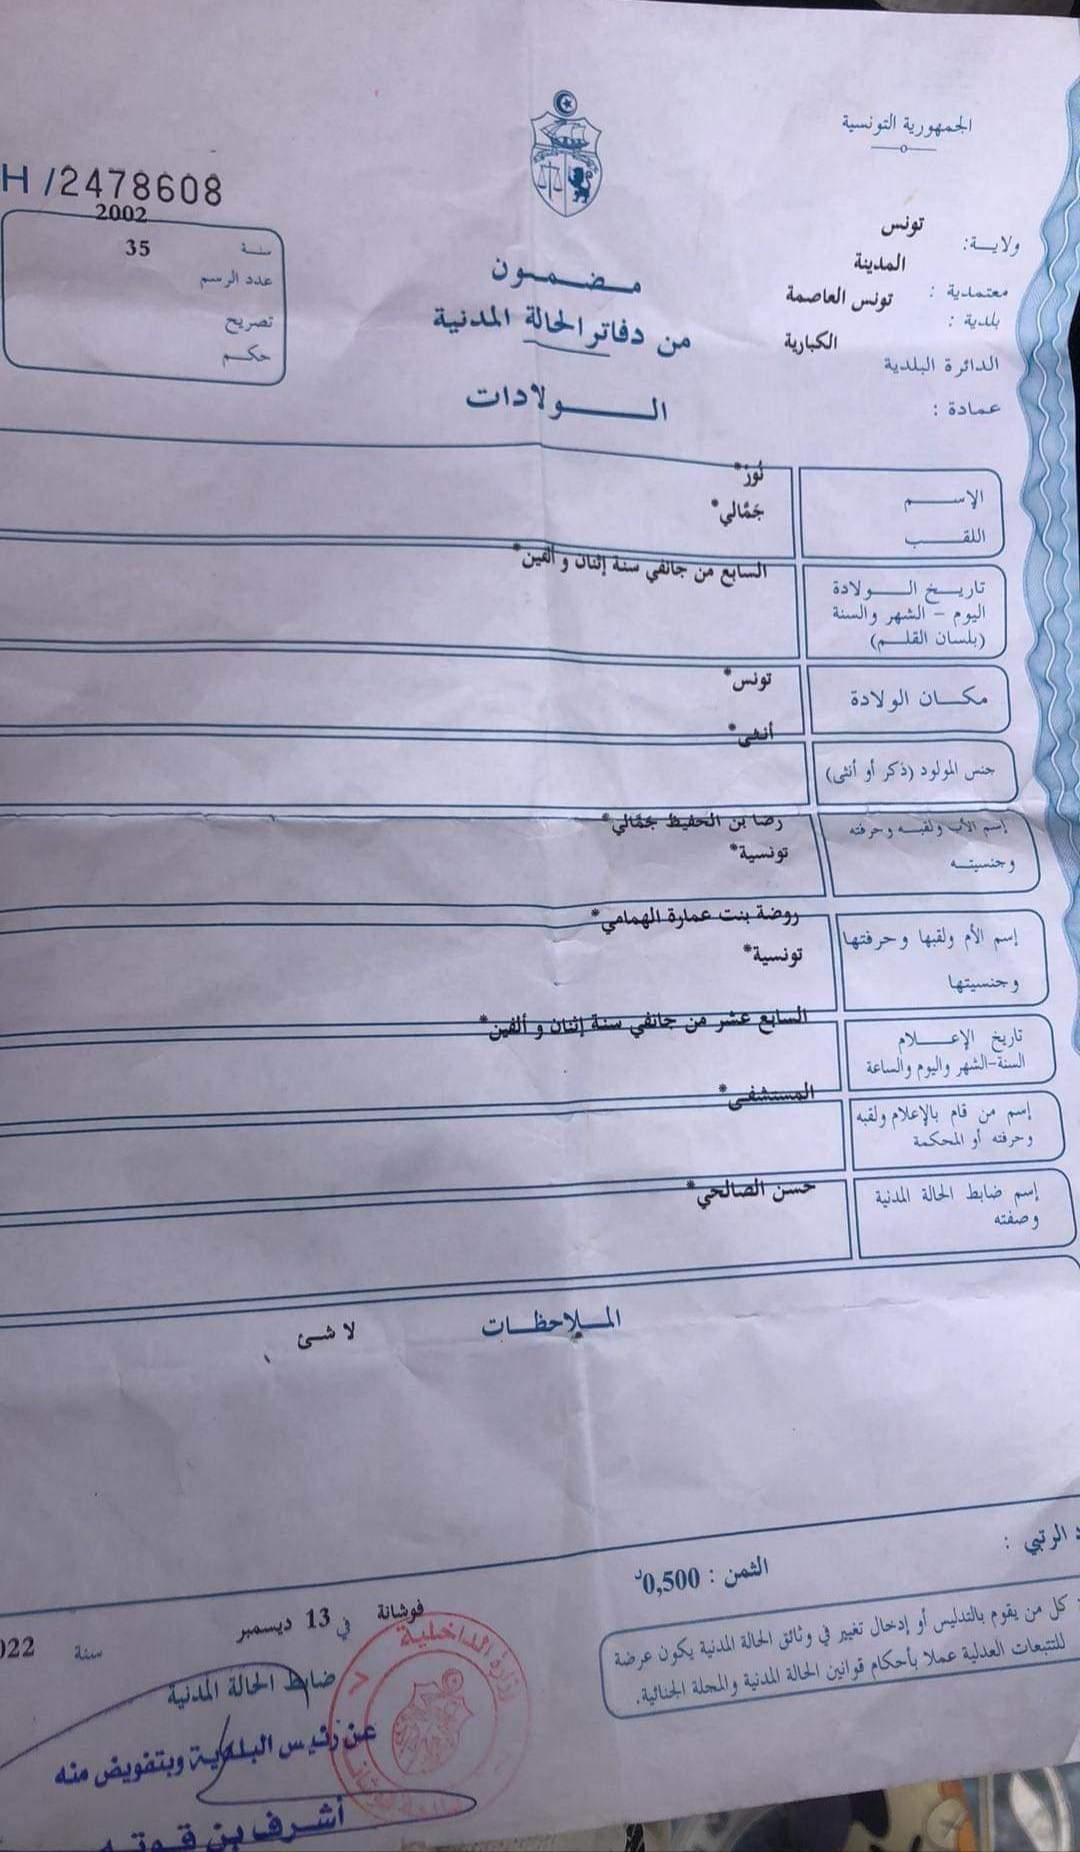 الجمهورية التونسية
ولايـــة: تونس
معتمدية : المدينة
بلدية : تونس العاصمة
الدائرة البلدية الكبارية
عمادة :
H /2478608
سنة 2002
عدد الرسم 35
تصريح
حكم
مضمون
من دفاتر الحالة المدنية
الولادات
الإسم نُوز*
اللقب جَمَّالي*
تاريخ الولادة السابع من جانفي سنة إثنان و ألفين*
اليوم - الشهر والسنة
(بلسان القلم)
مكان الولادة تونس*
جنس المولود (ذكر أو أنثى) أنثى*
إسم الأب ولقبه وحرفته رضا بن الحفيظ جَمَّالي*
وجنسيته تونسية*
إسم الأم ولقبها وحرفتها روضة بنت عمارة الهمامي*
وجنسيتها تونسية*
تاريخ الإعلام السابع عشر من جانفي سنة إثنان و ألفين*
السنة-الشهر واليوم والساعة
إسم من قام بالإعلام ولقبه المستشفى*
وحرفته أو المحكمة
إسم ضابط الحالة المدنية حسن الصالحي*
وصفته
الملاحظات
لا شئ
الرتبي :
الثمن : 0,500د
كل من يقوم بالتدليس أو إدخال تغيير في وثائق الحالة المدنية يكون عرضة
للتتبعات العدلية عملا بأحكام قوانين الحالة المدنية والمجلة الجنائية.
فوشانة في 13 ديسمبر سنة 022
ضابط الحالة المدنية
عن رئيس البلدية وبتفويض منه
أشرف بن
وزارة الداخلية